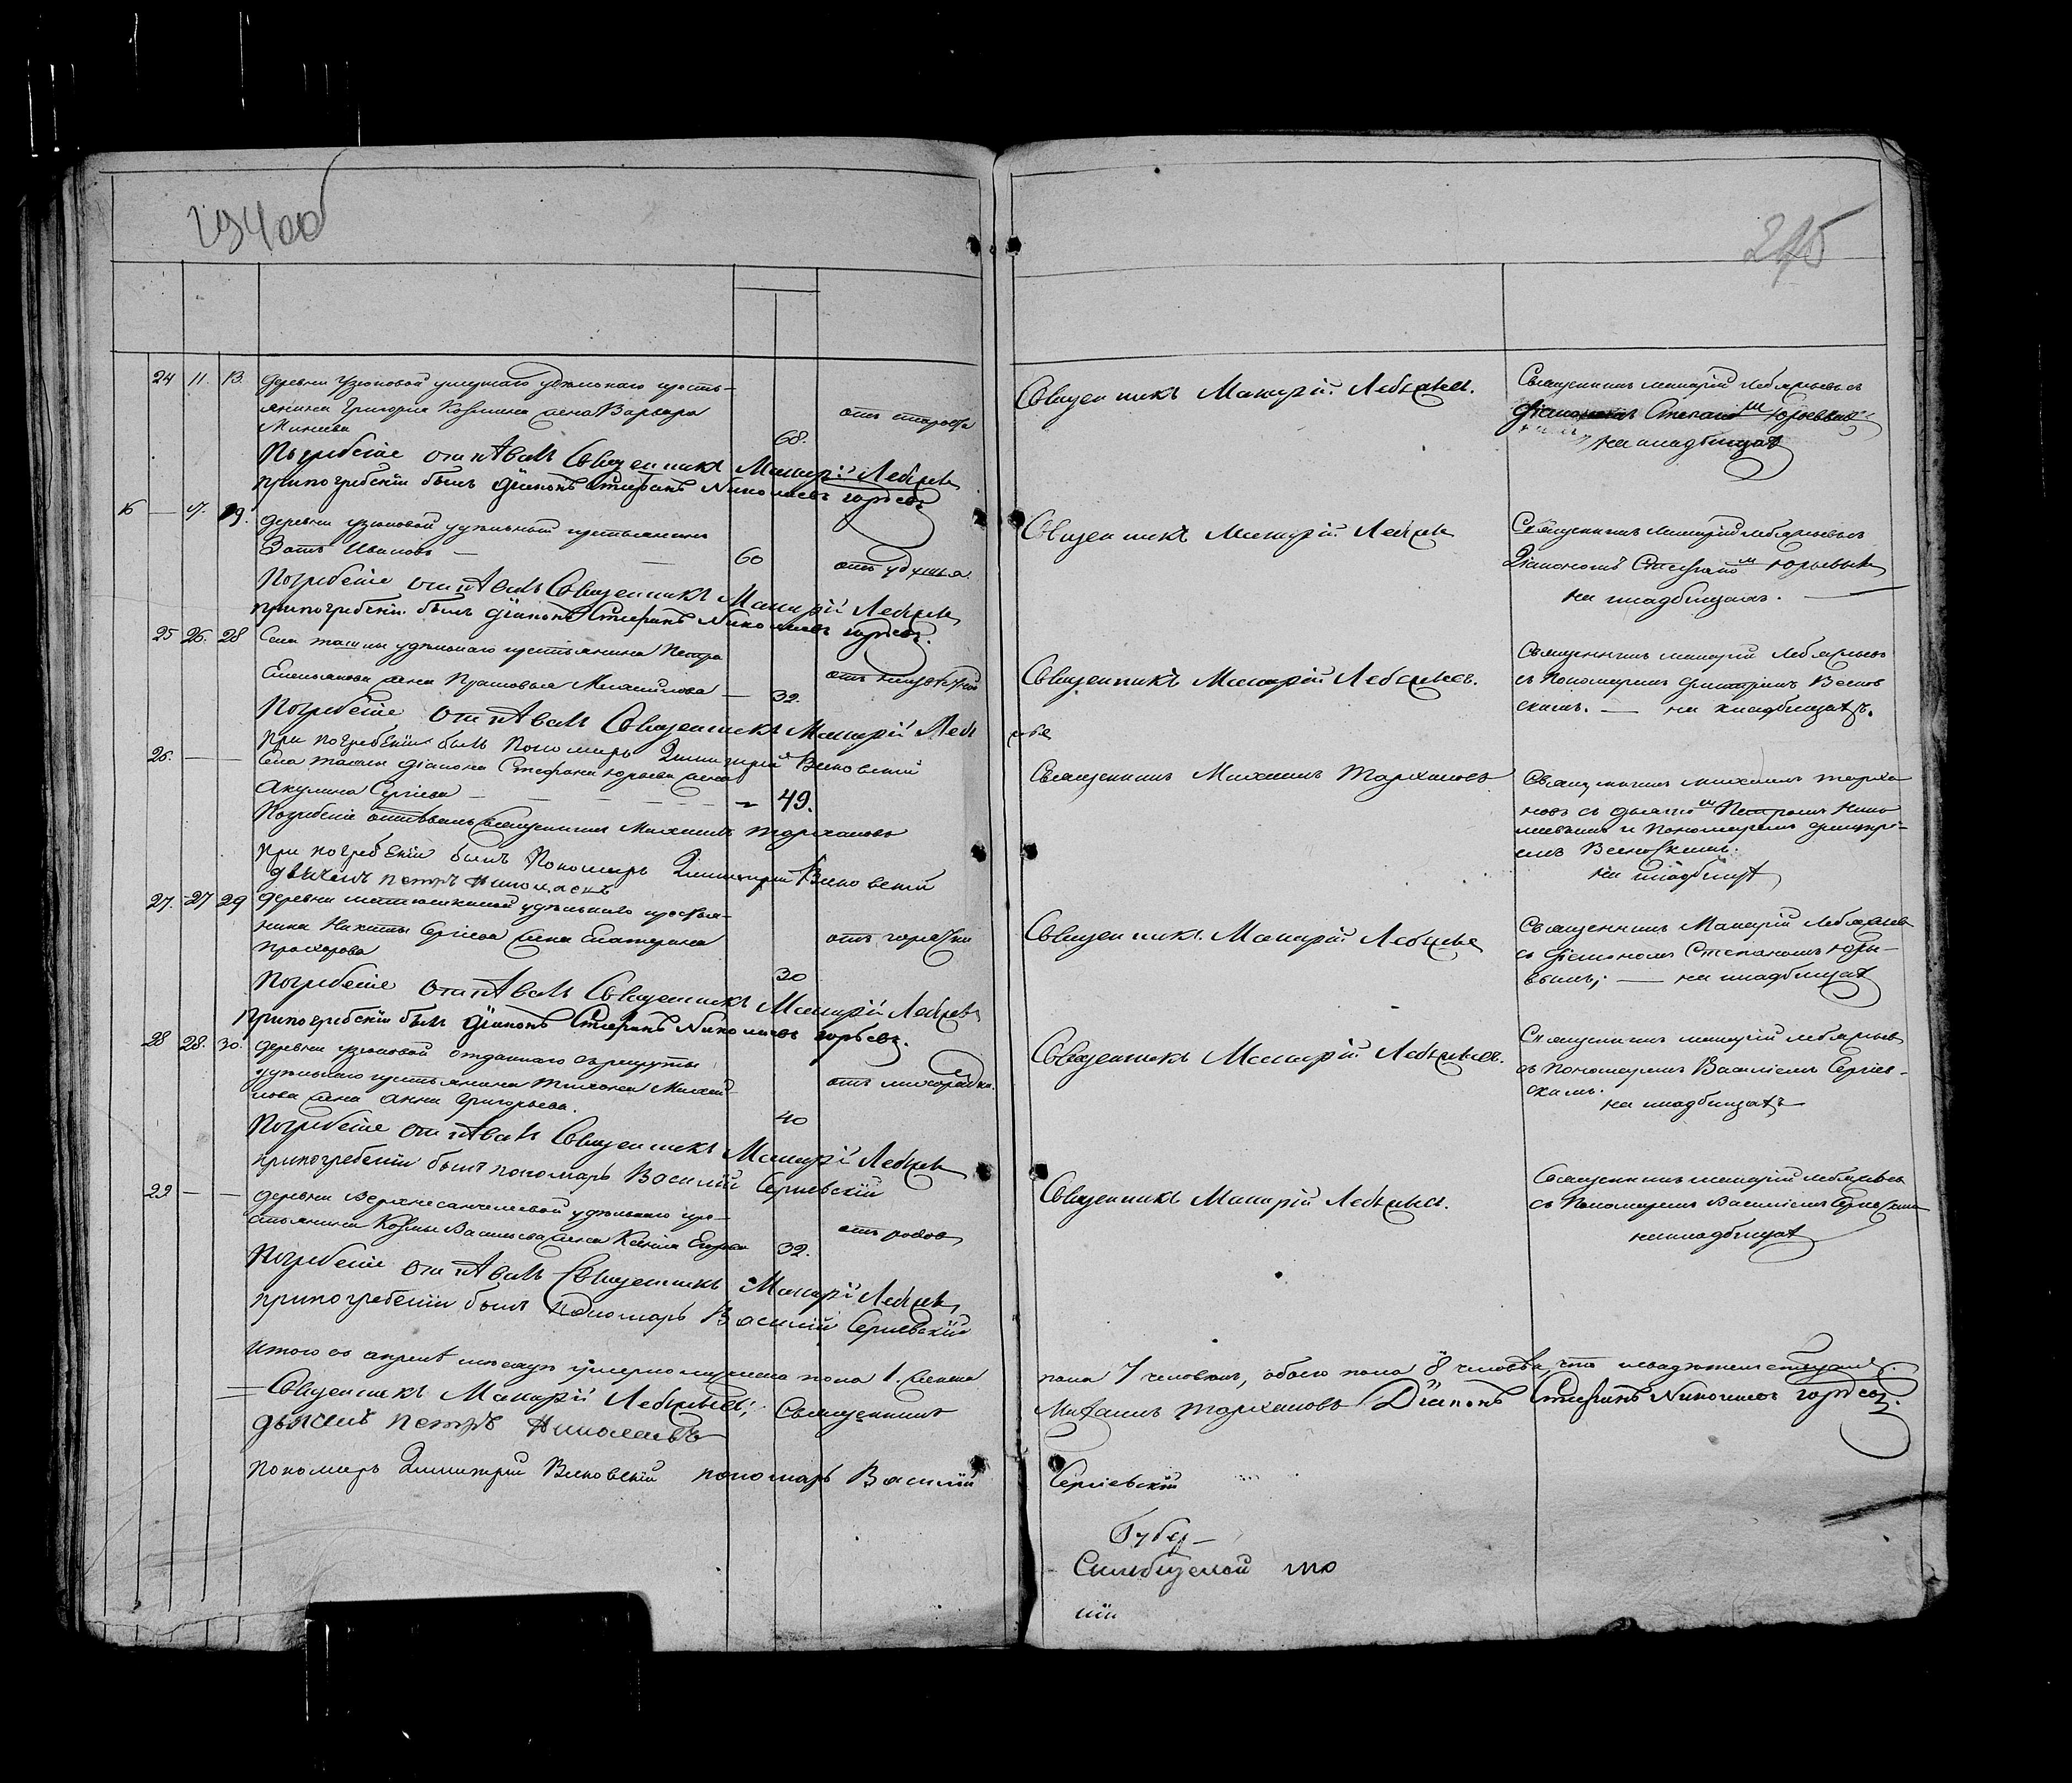 29400
245
24 11. 13. деревни Узюковой умершаго удѣльнаго кресть-
янина Григорья Козмина жена Варвара
Минеева
68.
отъ старости
Погребеніе отпѣвалъ Священникъ Макарій Лебяжьев
при погребеніи былъ Діаконъ Стефанъ Николаевъ Юрьевъ
Священникъ Макарій Лебяжьев.
Священникъ Макарій Лебяжьевъ съ
Діакономъ Стефаномъ Юрьевымъ
на кладбищѣ
16 — 17. 19. деревни Узюковой удѣльный крестьянинъ
Иванов —
60
отъ удушья.
Погребеніе отпѣвалъ Священникъ Макарій Лебяжев
при погребеніи былъ Діаконъ Стефанъ Николаевъ Юрьевъ.
Священникъ Макарій Лебяжев
Священникъ Макарій Лебяжьевъ съ
Діакономъ Стефаномъ Юрьевымъ
на кладбищѣ.
25 26. 28 Села Ташлы удѣльнаго крестьянина Петра
Емельянова жена Прасковья Михайлова —
32.
Погребеніе отпѣвалъ Священникъ Макарій Лебя
жье
При погребеніи былъ Пономарь Димитрій Висковскій
Священникъ Макарій Лебяжьев.
Священникъ Макарій Лебяжьевъ
съ Пономаремъ Димитріемъ Висков
скимъ. — на кладбищѣ.
26. — — Села Ташлы Діакона Стефана Юрьева жена
Акулина Сергіева — — — — —
49.
Погребеніе отпѣвалъ Священникъ Михаилъ Тарханов
при погребеніи былъ Пономарь Димитрій Висковскій
дьячекъ Петръ Николаевъ
Священникъ Михаилъ Тарханов
Священникъ Михаилъ Тарха
новъ съ дьячкомъ Петромъ Нико
лаевымъ и Пономаремъ Димитрі-
емъ Висковскимъ.
на кладбищѣ
27. 27 29 деревни удѣльнаго крестья-
нина Никиты Сергіева жена Екатерина
Прохорова
30
отъ горячки
Погребеніе отпѣвалъ Священникъ Макарій Лебяжев
При погребеніи былъ Діаконъ Стефанъ Николаевъ Юрьевъ.
Священникъ Макарій Лебяжье
Священникъ Макарій Лебяжьев
съ Діакономъ Стефаномъ Юрь-
евымъ; — на кладбищѣ
28 28. 30. деревни Узюковой отданнаго въ рекруты
удѣльнаго крестьянина Тихона Михай
лова жена Анна Григорьева.
40
отъ лихорадки.
Погребеніе отпѣвалъ Священникъ Макарій Лебяжев
при погребеніи былъ пономарь Василій Сергіевскій
Священникъ Макарій Лебяжьев.
Священникъ Макарій Лебяжьев
съ Пономаремъ Василіемъ Сергіев-
скимъ.
на кладбищѣ
29 — — деревни Верхне удѣльнаго кре-
стьянина Козмы Васильева жена Ксенія Егорова
32.
отъ родов
Погребеніе отпѣвалъ Священникъ Макарій Лебяжев
при погребеніи былъ пономарь Василій Сергіевскій
Священникъ Макарій Лебяжьев.
Священникъ Макарій Лебяжьевъ
съ Пономаремъ Василіемъ Сергіевским
на кладбищѣ
Итого въ апрелѣ мѣсяцѣ умерло мужеска пола 1. женска
пола 7 человѣкъ, обоего пола 8 человѣкъ, что
— Священникъ Макарій Лебяжьев; Священникъ
Михаилъ Тарханов Діаконъ Стефанъ Николаевъ Юрьевъ.
дьячекъ Петръ Николаевъ
Пономарь Димитрій Висковскій пономарь Василій
Сергіевскій
Губер-
Симбирской
ніи